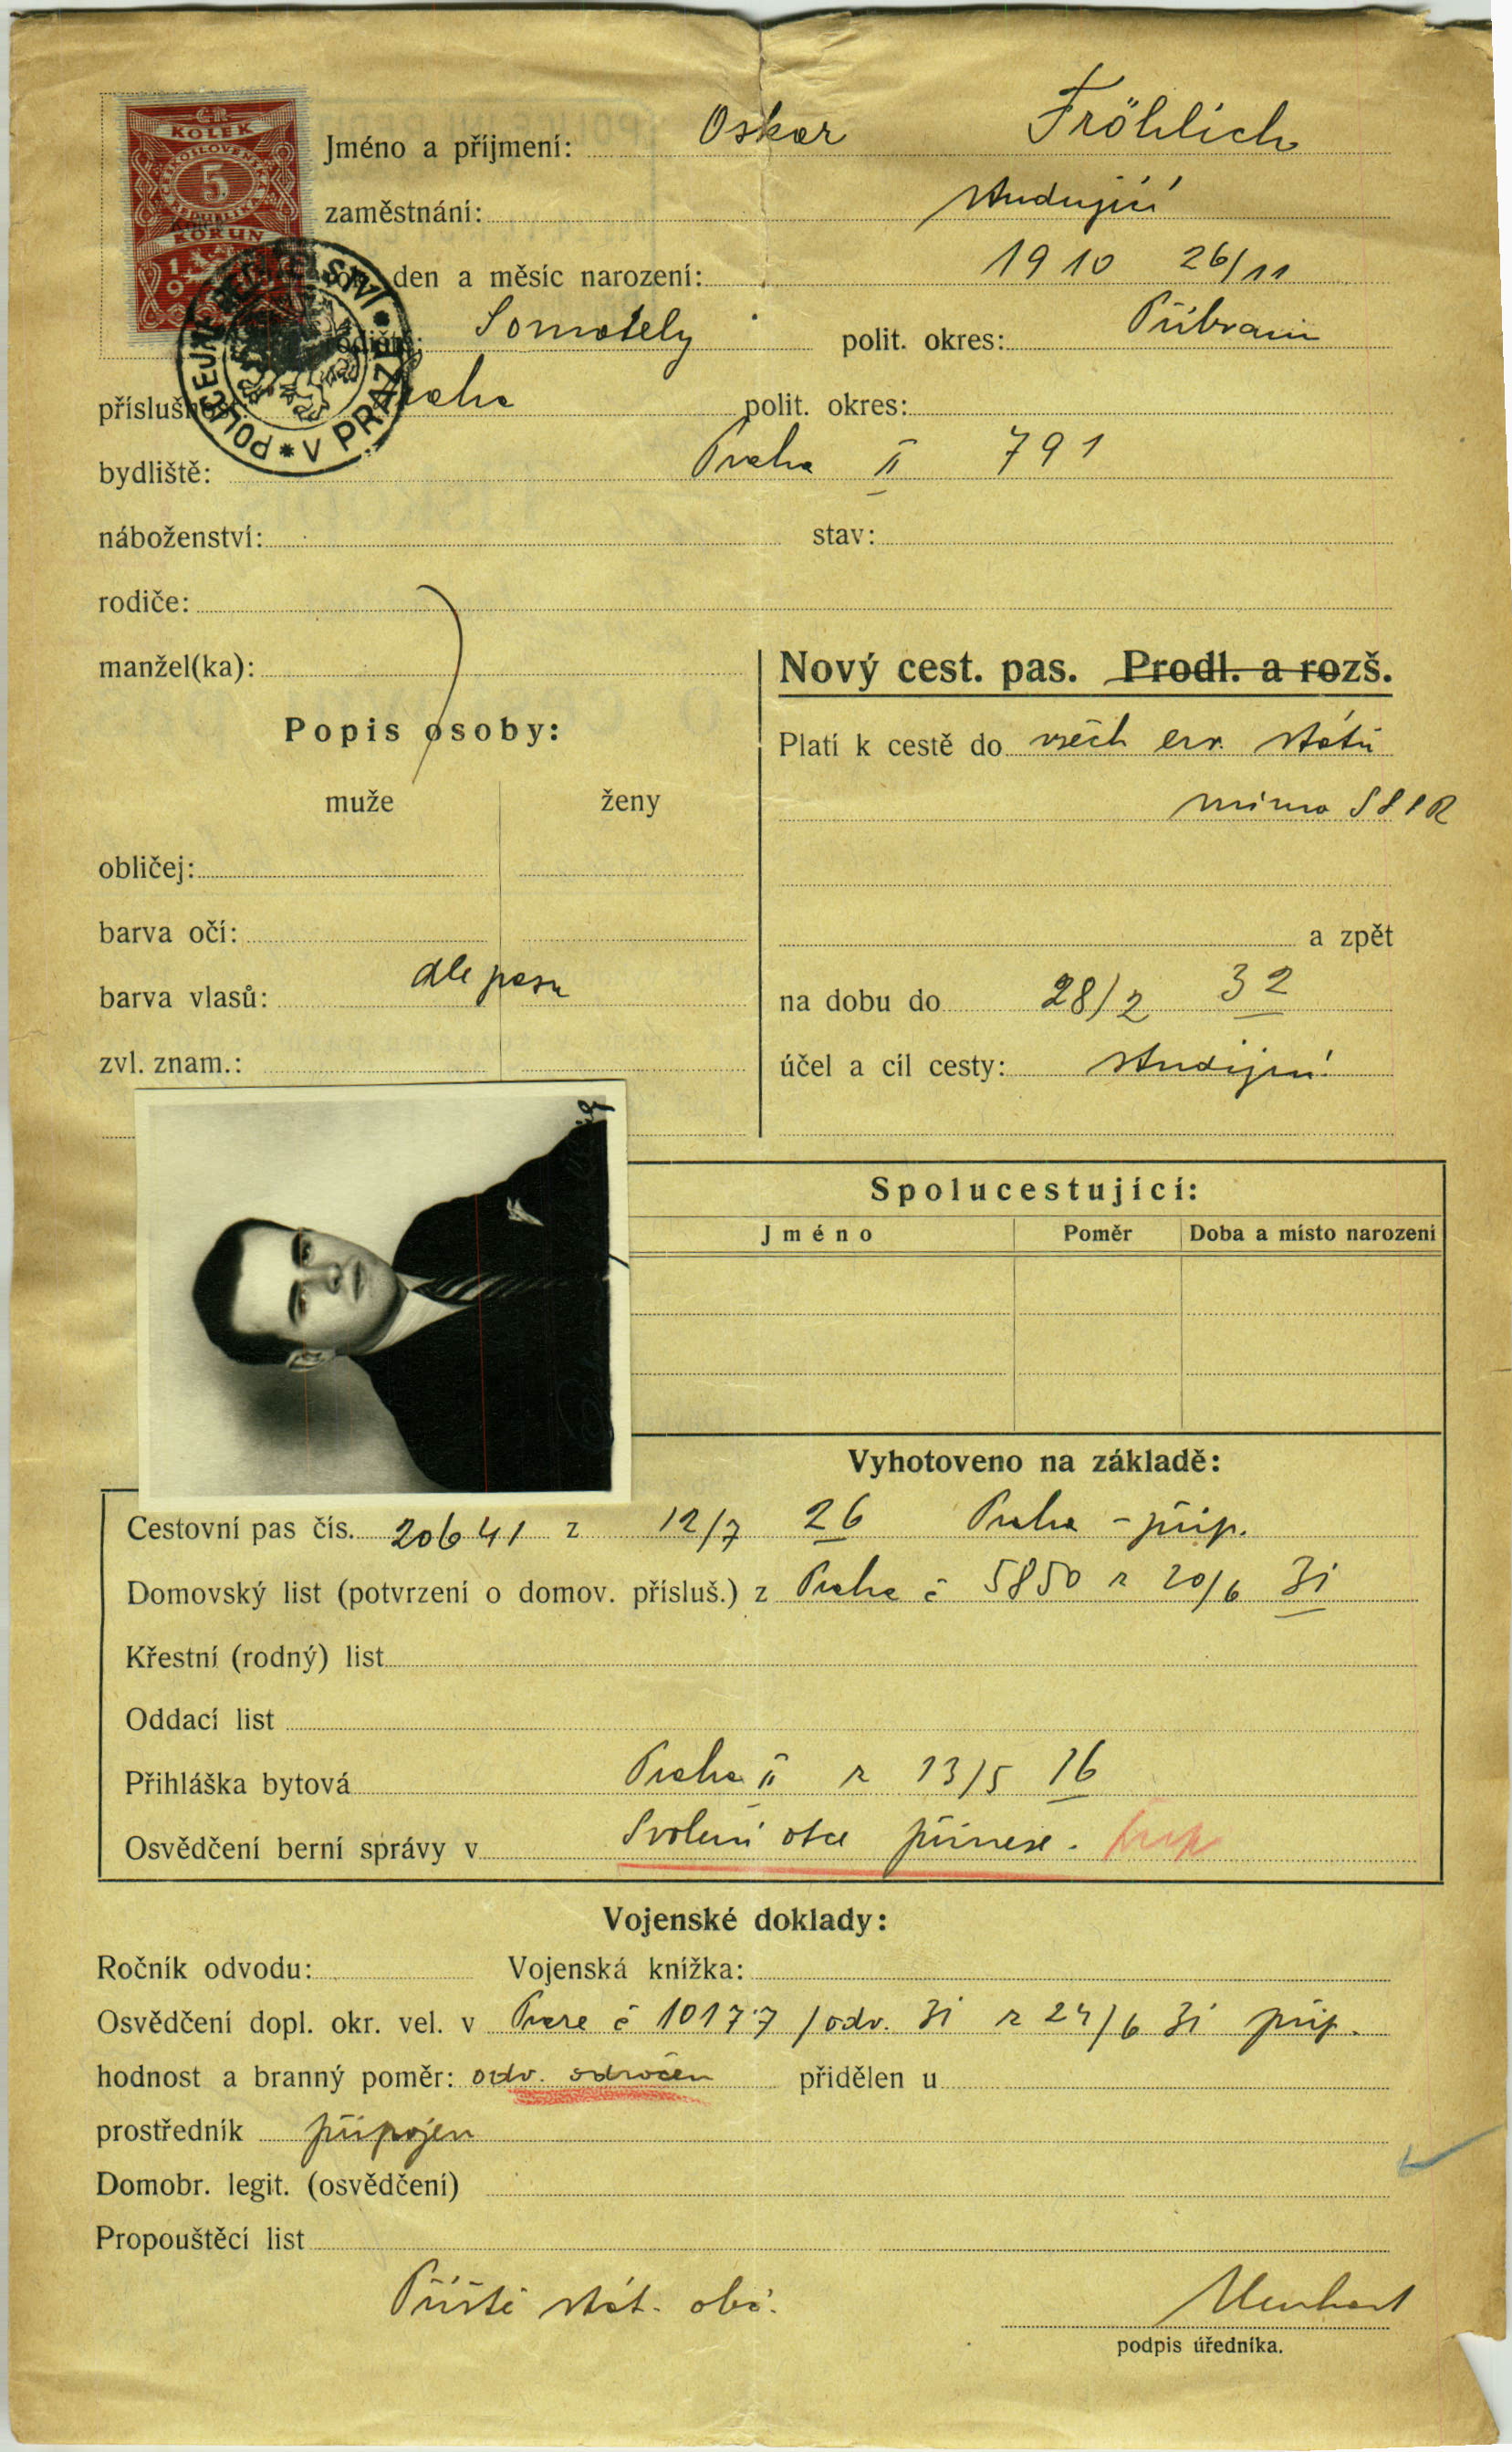 ČR
KOLEK
ČESKOSLOVENSKÁ
5
REPUBLIKA
KORUN
POLICEJNÍ ŘEDITELSTVÍ * V PRAZE *
Jméno a příjmení: Oskar Fröhlich
zaměstnání: studující
rok, den a měsíc narození: 1910 26/11
rodiště: polit. okres: Příbram
příslušnost: Praha polit. okres:
bydliště: Praha II 791
náboženství: stav:
rodiče:
manžel(ka):
Popis osoby:
muže ženy
obličej:
barva očí:
barva vlasů: dle pasu
zvl. znam.:
Nový cest. pas. Prodl. a rozš.
Platí k cestě do všech evr. států
mimo SSSR
a zpět
na dobu do 28/2 32
účel a cíl cesty: studijní
Spolucestující:
Jméno Poměr Doba a místo narození
Vyhotoveno na základě:
Cestovní pas čís. 20641 z 12/7 26 Praha - přip.
Domovský list (potvrzení o domov. přísluš.) z Praha č 5850 z 20/6 31
Křestní (rodný) list
Oddací list
Přihláška bytová Praha II z 13/5 16
Osvědčení berní správy v Svolení otce přinese. přip
Vojenské doklady:
Ročník odvodu: Vojenská knížka:
Osvědčení dopl. okr. vel. v Praze č 10177/odv. 31 z 24/6 31 přip.
hodnost a branný poměr: odv. odročen přidělen u
prostředník připojen
Domobr. legit. (osvědčení)
Propouštěcí list
Příště stát. obč.
podpis úředníka.